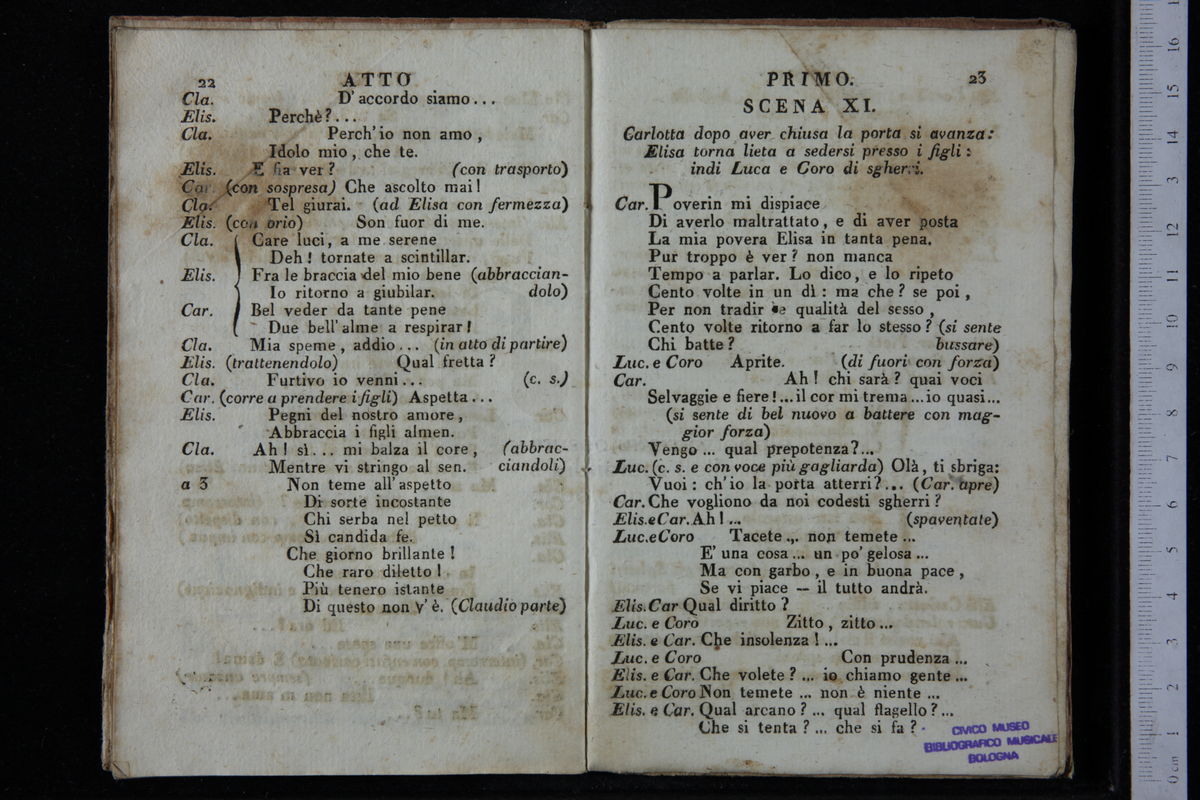 22 ATTO
Cla. D'accordo siamo...
Elis. Perchè?...
Cla. Perch'io non amo,
Idolo mio, che te.
Elis. E fia ver? (con trasporto)
Car. (con sospresa) Che ascolto mai!
Cla. Tel giurai. (ad Elisa con fermezza)
Elis. (con orio) Son fuor di me.
Cla. Care luci, a me serene
Deh! tornate a scintillar.
Elis. Fra le braccia del mio bene (abbraccian-
Io ritorno a giubilar. dolo)
Car. Bel veder da tante pene
Due bell'alme a respirar!
Cla. Mia speme, addio... (in atto di partire)
Elis. (trattenendolo) Qual fretta?
Cla. Furtivo io venni... (c. s.)
Car. (corre a prendere i figli) Aspetta...
Elis. Pegni del nostro amore,
Abbraccia i figli almen.
Cla. Ah! sì... mi balza il core, (abbrac-
Mentre vi stringo al sen. ciandoli)
a 3 Non teme all'aspetto
Di sorte incostante
Chi serba nel petto
Sì candida fe.
Che giorno brillante!
Che raro diletto!
Più tenero istante
Di questo non v'è. (Claudio parte)
PRIMO. 23
SCENA XI.
Carlotta dopo aver chiusa la porta si avanza:
Elisa torna lieta a sedersi presso i figli:
indi Luca e Coro di sgherri.
Car. Poverin mi dispiace
Di averlo maltrattato, e di aver posta
La mia povera Elisa in tanta pena.
Pur troppo è ver? non manca
Tempo a parlar. Lo dico, e lo ripeto
Cento volte in un dì: ma che? se poi,
Per non tradir le qualità del sesso,
Cento volte ritorno a far lo stesso? (si sente
Chi batte? bussare)
Luc. e Coro Aprite. (di fuori con forza)
Car. Ah! chi sarà? quai voci
Selvaggie e fiere!...il cor mi trema...io quasi...
(si sente di bel nuovo a battere con mag-
gior forza)
Vengo... qual prepotenza?...
Luc. (c. s. e con voce più gagliarda) Olà, ti sbriga:
Vuoi: ch'io la porta atterri?... (Car. apre)
Car. Che vogliono da noi codesti sgherri?
Elis.eCar. Ah!... (spaventate)
Luc.eCoro Tacete... non temete...
E' una cosa... un po' gelosa...
Ma con garbo, e in buona pace,
Se vi piace — il tutto andrà.
Elis.Car Qual diritto?
Luc. e Coro Zitto, zitto...
Elis. e Car. Che insolenza!...
Luc. e Coro Con prudenza...
Elis. e Car. Che volete?... io chiamo gente...
Luc. e Coro Non temete... non è niente...
Elis. e Car. Qual arcano?... qual flagello?...
Che si tenta?... che si fa?
CIVICO MUSEO
BIBLIOGRAFICO MUSICALE
BOLOGNA